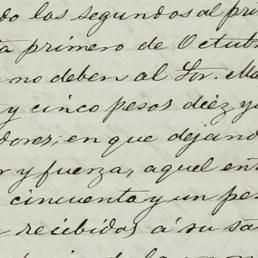 do los segundos al pri
ta primero de Octub
no deben al Sor. Ma
y cinco pesos diez y
dores, en que dejand
r y fuerza, aquel ent
cincuenta y un pes
recibidos á su sa